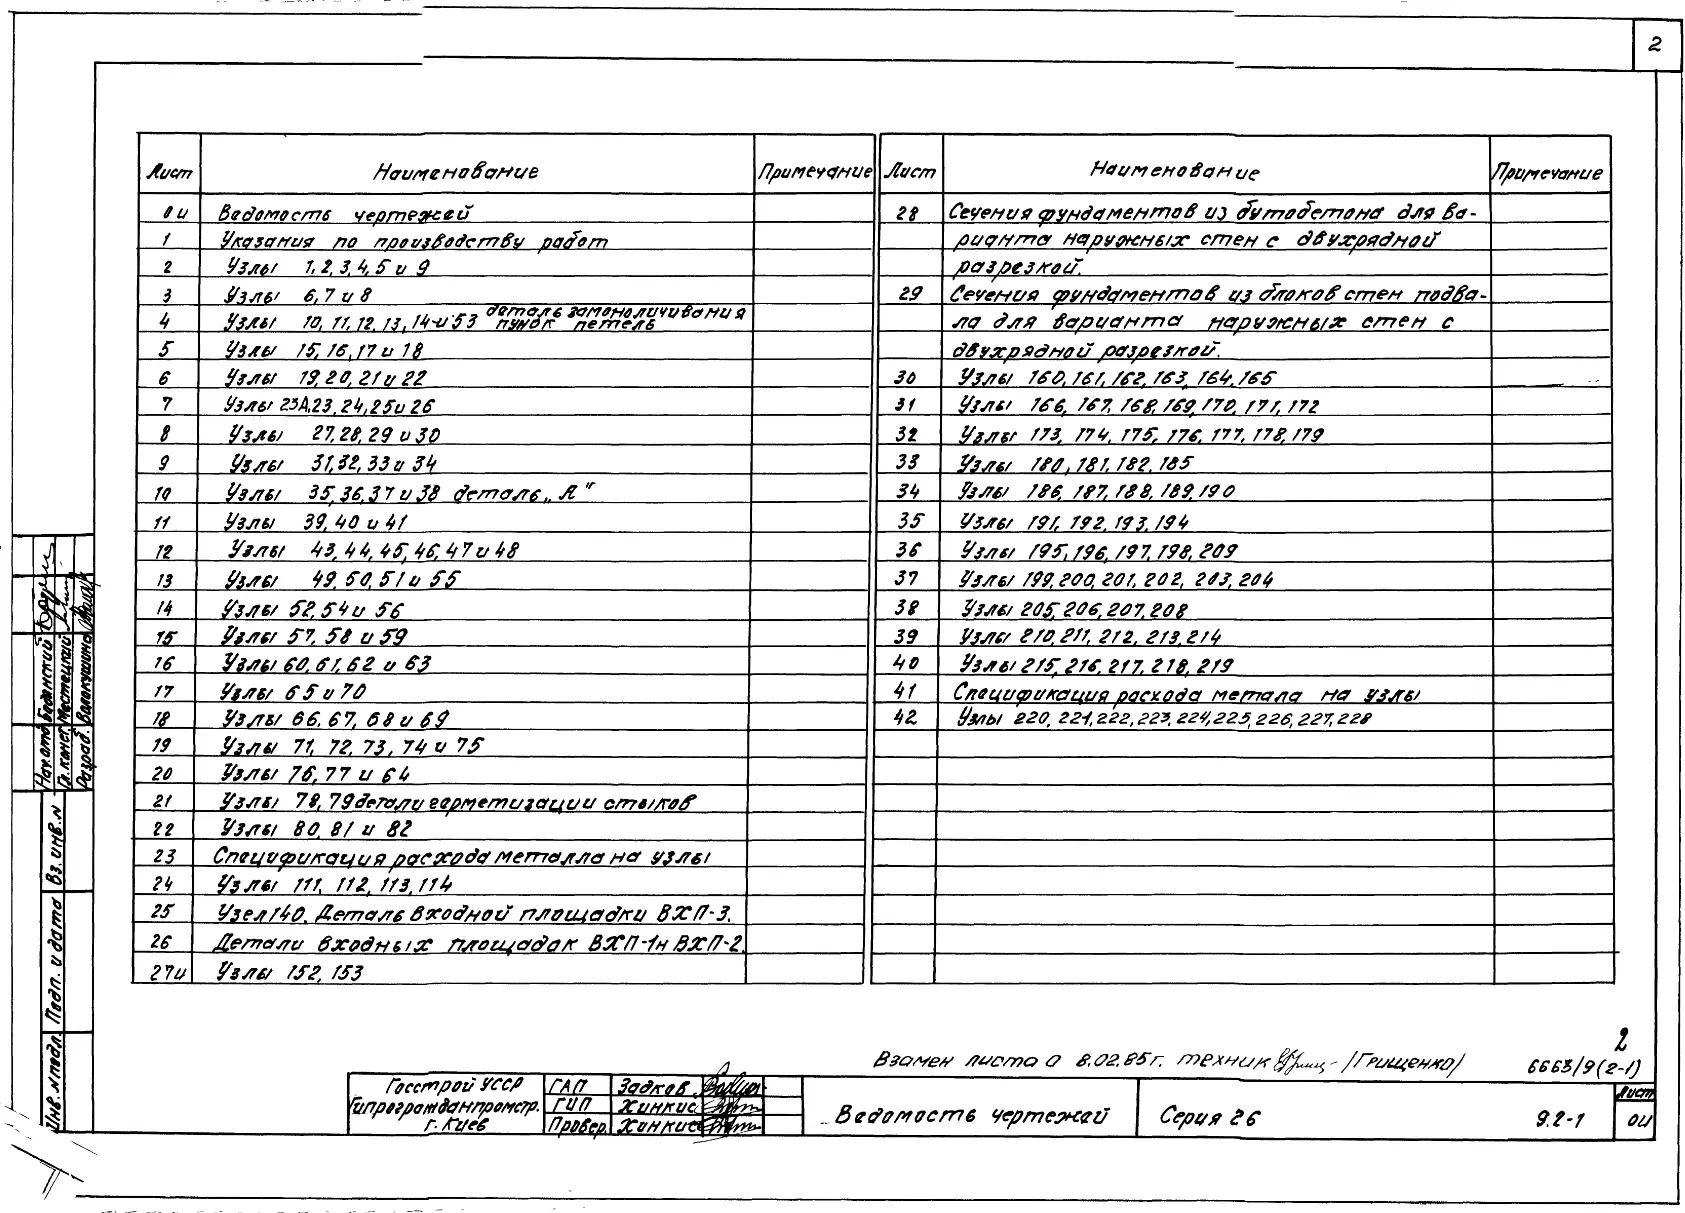 2
Лист Наименование Примечание
0и Ведомость чертежей
1 Указания по производству работ
2 Узлы 1, 2, 3, 4, 5 и 9
3 Узлы 6, 7 и 8
4 Узлы 10, 11, 12, 13, 14 и 53 деталь замоноличивания
пунок петель
5 Узлы 15, 16, 17 и 18
6 Узлы 19, 20, 21 и 22
7 Узлы 23А, 23, 24, 25 и 26
8 Узлы 27, 28, 29 и 30
9 Узлы 31, 32, 33 и 34
10 Узлы 35, 36, 37 и 38 деталь „А"
11 Узлы 39, 40 и 41
12 Узлы 43, 44, 45, 46, 47 и 48
13 Узлы 49, 50, 51 и 55
14 Узлы 52, 54 и 56
15 Узлы 57, 58 и 59
16 Узлы 60, 61, 62 и 63
17 Узлы 65 и 70
18 Узлы 66, 67, 68 и 69
19 Узлы 71, 72, 73, 74 и 75
20 Узлы 76, 77 и 64
21 Узлы 78, 79 детали герметизации стыков
22 Узлы 80, 81 и 82
23 Спецификация расхода металла на узлы
24 Узлы 111, 112, 113, 114
25 Узел 140. Деталь входной площадки ВХП-3.
26 Детали входных площадок ВХП-1н ВХП-2.
27и Узлы 152, 153
Лист Наименование Примечание
28 Сечения фундаментов из бутобетона для ва-
рианта наружных стен с двухрядной
разрезкой.
29 Сечения фундаментов из блоков стен подва-
ла для варианта наружных стен с
двухрядной разрезкой.
30 Узлы 160, 161, 162, 163, 164, 165
31 Узлы 166, 167, 168, 169, 170, 171, 172
32 Узлы 173, 174, 175, 176, 177, 178, 179
33 Узлы 180, 181, 182, 185
34 Узлы 186, 187, 188, 189, 190
35 Узлы 191, 192, 193, 194
36 Узлы 195, 196, 197, 198, 209
37 Узлы 199, 200, 201, 202, 203, 204
38 Узлы 205, 206, 207, 208
39 Узлы 210, 211, 212, 213, 214
40 Узлы 215, 216, 217, 218, 219
41 Спецификация расхода метала на узлы
42 Узлы 220, 221, 222, 223, 224, 225, 226, 227, 228
Нач. отд. Беданский
Гл. конст. Местецкий
Разраб. Валакушина
Вз. инв. №
Подп. и дата
Инв. № подл.
Взамен листа 0 8.02.85г. техник /Грищенко/
2
6663/9(2-1)
Госстрой УССР
Гипрогражданпромстр.
г. Киев
ГАП Задков
ГИП Хинкис
Провер. Хинкис
Ведомость чертежей
Серия 26 9.2-1
Лист
0и